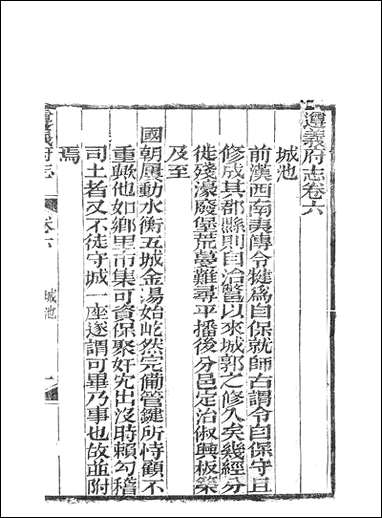 遵義府志卷六
城池
前漢西南夷傳令犍爲自保就師古謂令自保守且
修成其郡縣則自治豁以來城郭之修久矣幾經分
徙殘濠廢堡荒墓難尋平播後分邑定治俶興板築
及至
國朝屢動水衡五城金湯始屹然完備管鍵所恃顧不
重歟他如鄉里市集可資保聚奸宄出沒時賴勾稽
司土者又不徒守城一座遂謂可畢乃事也故並附
焉
遵義府志
卷六
城池
一